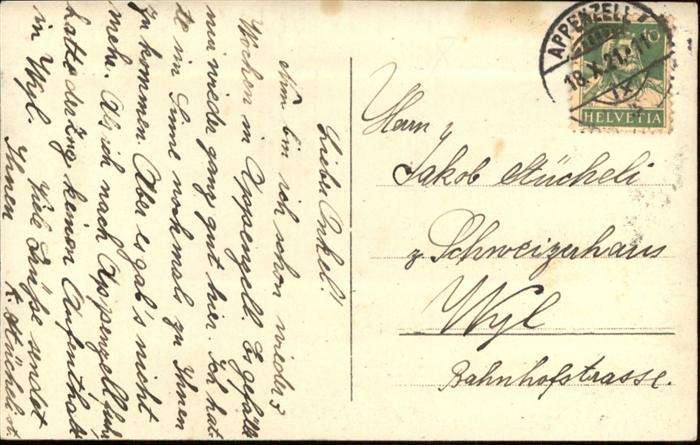 Lieber Onkel!
Nun bin ich schon wieder 3
Wochen in Appenzell. Es gefällt
mir wieder ganz gut hier. Ich hat-
te im Sinne nochmals zu Ihnen
zu kommen. Aber es gab's nicht
mehr. Als ich nach Appenzell fuhr
hatte der Zug keinen Aufenthalt
in Wyl. Viele Grüsse sendet
Ihnen
APPENZELL
18.X.21.
10
HELVETIA
Herrn
Jakob Stücheli
z. Schweizerhaus
Wyl
Bahnhofstrasse.